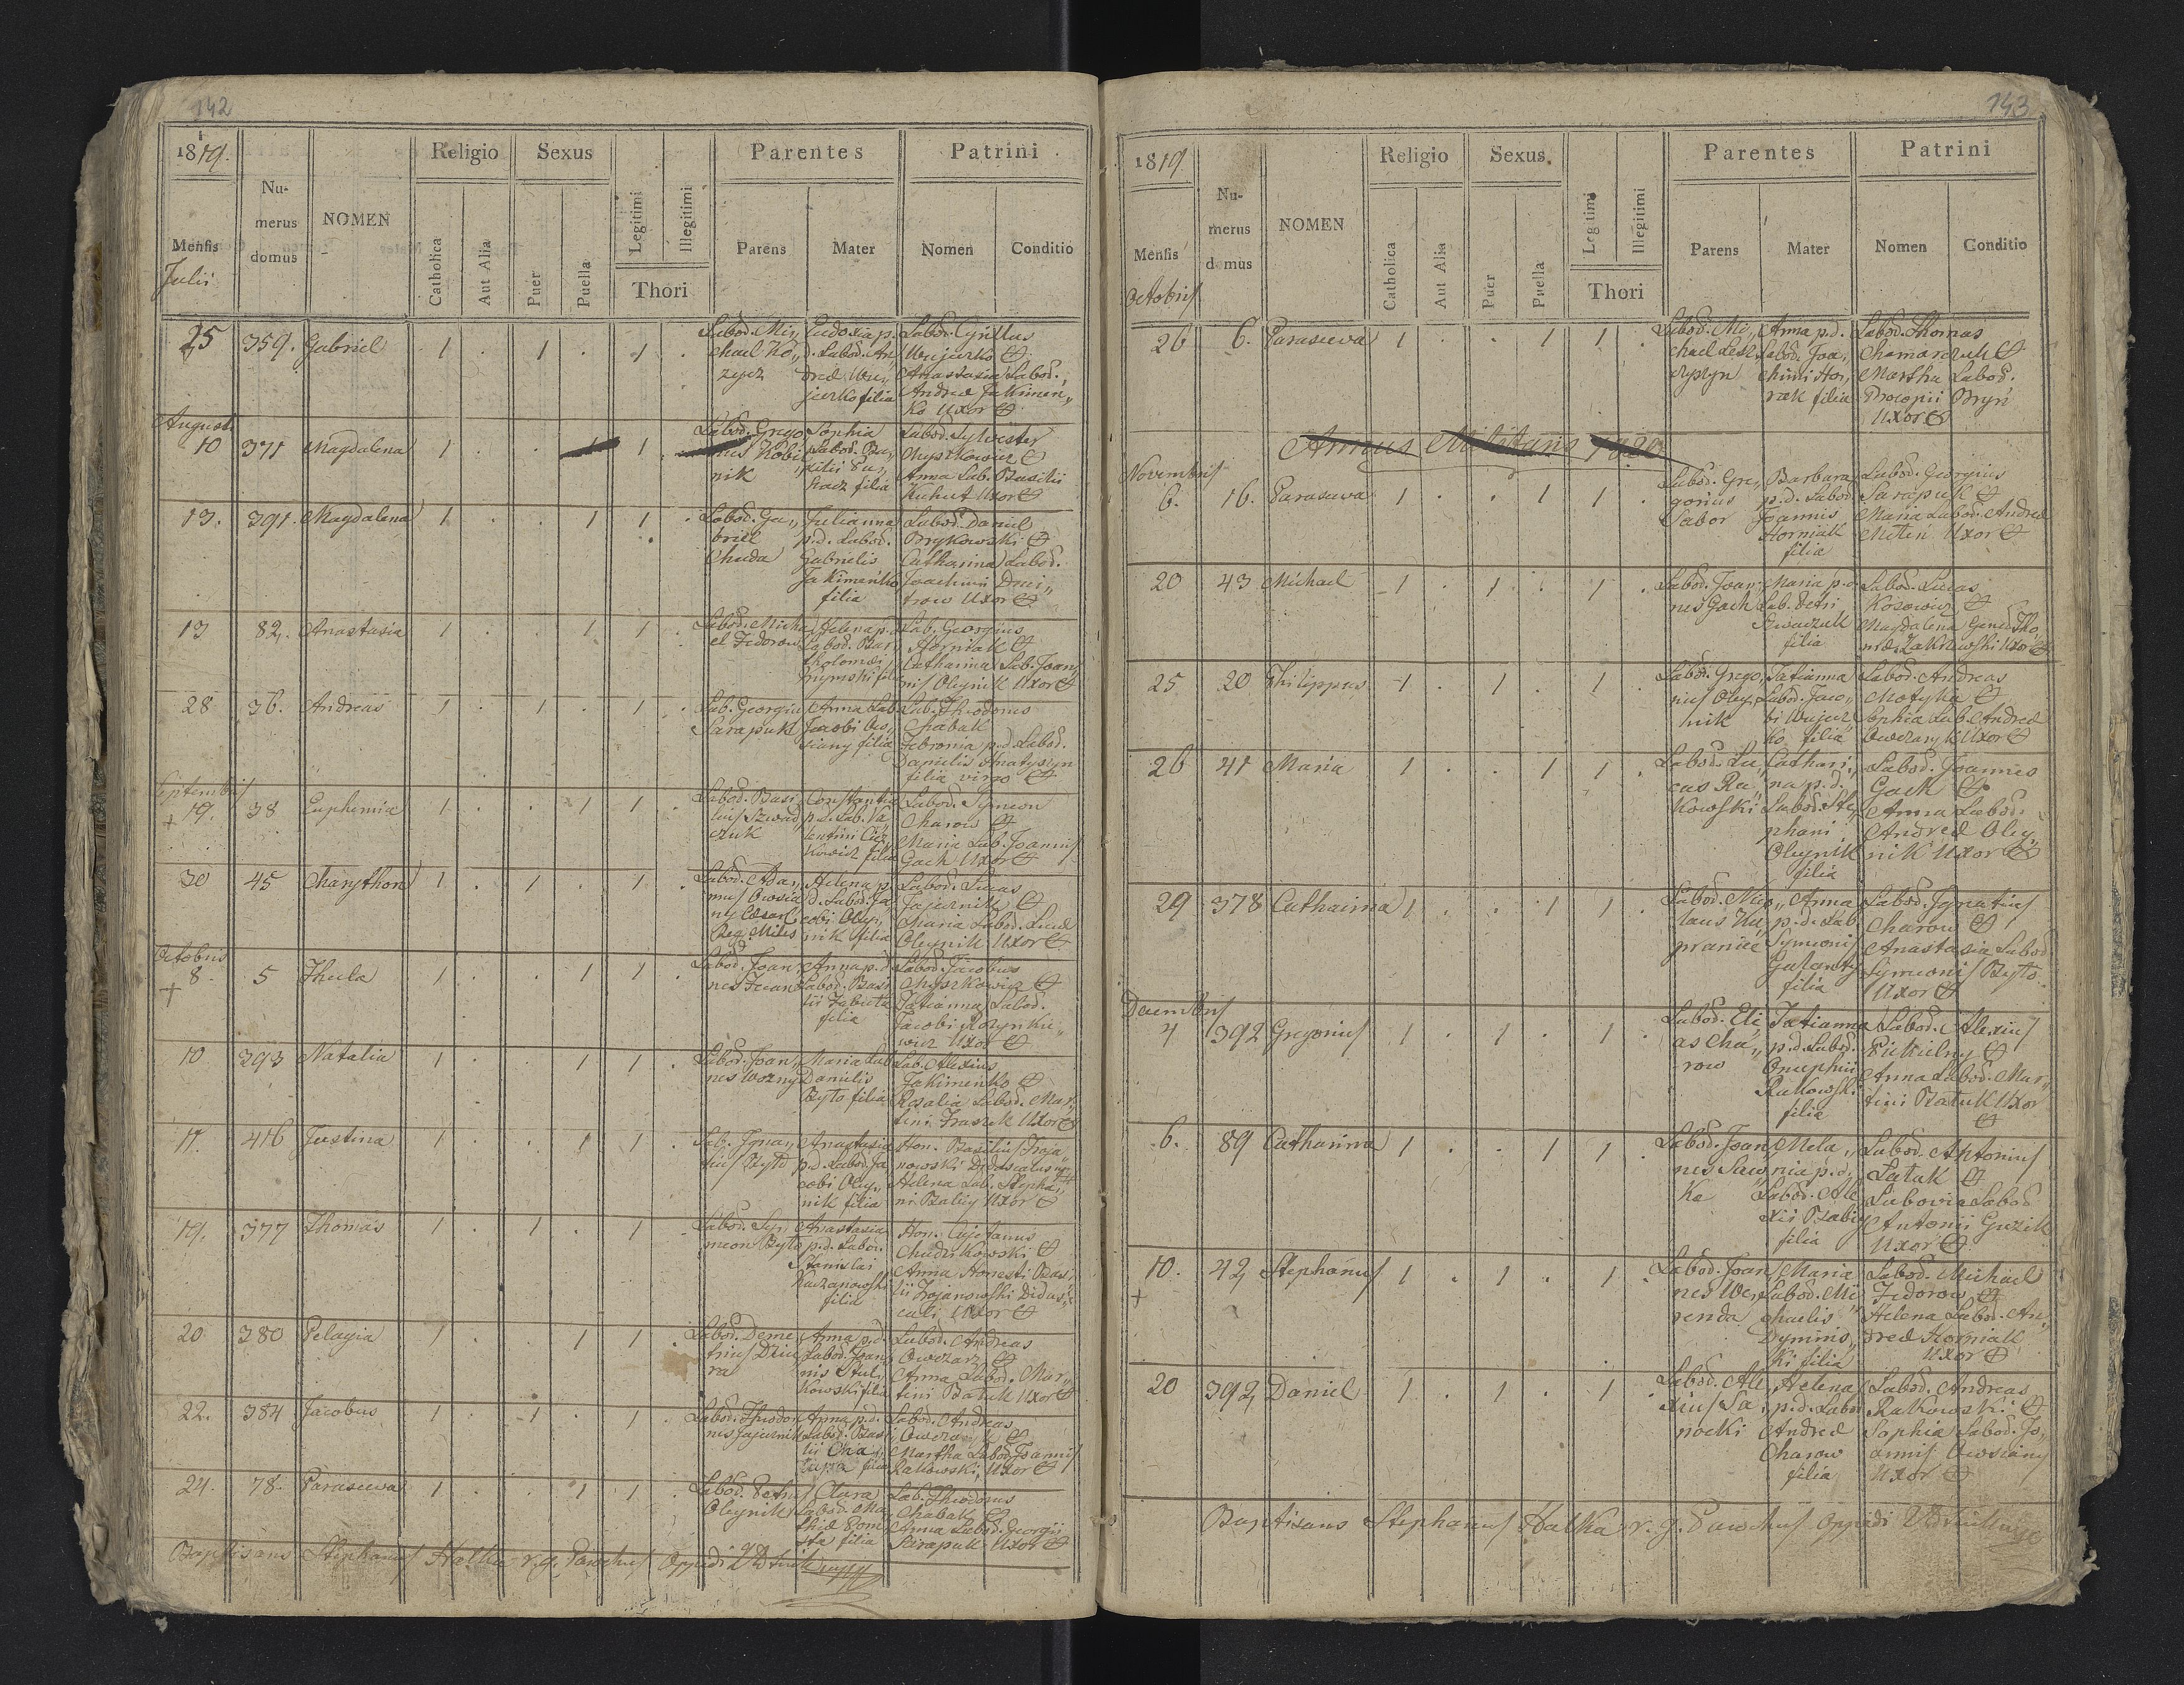 142
1819.
Mensis
Julii
Numerus domus
NOMEN
Religio
Catholica
Aut Alia
Sexus
Puer
Puella
Legitimi
Illegitimi
Thori
Parentes
Parens
Mater
Patrini
Nomen
Conditio
25 359. Gabriel 1 . 1 . 1 .
Labod. Mi„
chael Ko„
zycz
Eudoxia p.
d. Labod. An
dreæ Wu„
jurko filia
Labod. Cyrillus
Wujurko
Anastasia Labod.
Andreæ Jakimen„
ko Uxor
Augusti
10 371 Magdalena 1 . . 1 1 .
Labod. Grego
rius Kobi
nik
Sophia
Labod. Ba„
silii
filia
Labod. Sylvester
Myszkowicz
Anna Lab. Basilii
Kuhut Uxor
13. 391. Magdalena 1 . . 1 1 .
Labod. Ga„
briel
Chuda
Julianna
p.d. Labod.
Gabrielis
Jakimenko
filia
Labod. Daniel
Brykowski
Catharina Labod.
Joachimi Dmi„
trow Uxor
13 82. Anastasia 1 . . 1 1 .
Labod. Micha
el Fedorow
Helena p.d.
Labod. Bar
tholomæi
Lab. Georgius
Horniak
Catharina Lab. Joan
nis Oleynik Uxor
28 36. Andreas 1 . 1 . 1 .
Lab. Georgius
Sarapuk
Anna Lab.
Jacobi Ow„
siany filia
Lab. Theodorus
Chabak
Febronia p.d. Labod.
Danielis Hnatyszyn
filia virgo
Septembris
+ 19. 38 Euphemia 1 . . 1 1 .
Labod. Basi
lius Szwad
czuk
Constantia
p.d. Lab. Va
lentini
filia
Labod. Symeon
Charow
Maria Lab. Joannis
Gach Uxor
30 45 Charython 1 . 1 . 1 .
Labod. Ada„
mus Owsia
ny Cæsar.
Reg. Miles
Helena p.
d. Labod. Ja
cobi Oley„
nik filia
Labod. Lucas
Jajurnik
Maria Labod. Lucæ
Oleynik Uxor
Octobris
+ 8. 5 Thecla 1 . . 1 1 .
Labod. Joan
nes
Anna p.d.
Labod. Basi
lii
filia
Labod. Jacobus
Myszkowicz
Tatianna Labod.
Jacobi Rozynkie„
wicz Uxor
10. 393 Natalia 1 . . 1 1 .
Labod. Joan„
nes Wozny
Maria Lab
Danielis
Byto filia
Lab. Alexius
Jakimenko
Rosalia Labod. Mar„
tini Uxor
17. 416 Justina 1 . . 1 1 .
Lab. Igna„
tius Byto
Anastasia
p.d. Labod. Ja
cobi Oley„
nik filia
Hon. Basilius Troja„
nowski Didascalus
Helena Lab. Stepha„
ni Babiy Uxor
19. 377 Thomas 1 . 1 . 1
Labod. Sy„
meon Byto
Anastasia
p.d. Labod.
Stanislai
Kuczanowski
filia
Hon. Cajetanus
Chudzikowski
Anna Honesti Basi
lii Trojanowski Didas„
cali Uxor
20 380 Pelagia 1 . . 1 1 .
Labod. Deme
trius
Anna p.d.
Labod. Joan
nis
filia
Labod. Andreas
Owczar
Anna Labod. Mar„
tini Batuk Uxor
22. 384 Jacobus 1 . 1 . 1 .
Labod. Theodo
rus Jajurnik
Anna p.d.
Labod. Basi
lii Cha„
lupa filia
Labod. Andreas
Martha Labod. Joannis
Rakowski Uxor
24. 78. Parascewa 1 . . 1 1 .
Labod. Petrus
Oleynik
Clara
Labod. Ma„
filia
Lab. Theodorus
Chabak
Anna Labod. Georgii
Sarapuk Uxor
Baptisans Stephanus Halka r.g. Parochus Oppidi
143
1819.
Mensis
Octobris
Numerus domus
NOMEN
Religio
Catholica
Aut Alia
Sexus
Puer
Puella
Legitimi
Illegitimi
Thori
Parentes
Parens
Mater
Patrini
Nomen
Conditio
26 6. Parascewa 1 . . 1 1 .
Labod. Mi„
chael
Anna p.d.
Labod. Joa„
chimi Hor„
niak filia
Labod. Thomas
Chamarczuk
Martha Labod.
Procopii Bryń
Uxor
Annus Militaris 1820
Novembris
6. 16. Parascewa 1 . . 1 1 .
Labod. Gre„
gorius
Sabor
Barbara
p.d. Labod.
Joannis
Horniak
filia
Labod. Georgius
Sarapuk
Maria Labod. Andreæ
Uxor
20 43 Michael 1 . 1 . 1 .
Labod. Joan„
nes Gach
Maria p.d.
Lab. Petri
filia
Labod. Lucas
Kosowicz
Magdalena Gener. Tho„
Uxor
25 20 Philippus 1 . 1 . 1 .
Labod. Grego„
rius Oley„
nik
Tatianna
Labod. Jaco„
bi Wujur„
ko filia
Labod. Andreas
Motyka
Sophia Lab. Andreæ
Uxor
26 41 Maria 1 . . 1 1 .
Labod. Lu„
cas Ra„
kowski
Cathari„
na p.d.
Labod. Ste„
phani
Oleynik
filia
Labod. Joannes
Gach
Anna Labod.
Andreæ Oley„
nik Uxor
29 378 Catharina 1 . . 1 1 .
Labod. Nico„
laus Ku„
praniec
Anna
p.d. Lab.
Symeonis
Galanty
filia
Labod. Ignatius
Charow
Anastasia Labod.
Symeonis Byto
Uxor
Decembris
4 392 Gregorius 1 . 1 . 1 .
Labod. Eli„
as Cha„
row
Tatianna
p.d. Labod.
Onuphrii
Rakowski
filia
Labod. Alexius
Pikulny
Anna Labod. Mar„
tini Batuk Uxor
6. 89 Catharina 1 . . 1 1 .
Labod. Joan
nes Saw
ka
Mela„
nia p.d.
Labod. Ale
xii Babiy
filia
Labod. Antonius
Latak
Labod.
Antonii Guzik
Uxor
10. + 42 Stephanus 1 . 1 . 1 .
Labod. Joan
nes We„
renda
Maria
Labod. Mi„
chaelis
Dymins„
ki filia
Labod. Michael
Fedorow
Helena Labod. An„
dreæ Horniak
Uxor
20 392 Daniel 1 . 1 . 1 .
Labod. Ale„
xius Sa„
nocki
Helena
p.d. Labod.
Andreæ
Charow
filia
Labod. Andreas
Rakowski
Sophia Labod. Jo„
annis Owsiany
Uxor
Baptisans Stephanus Halka r.g. Parochus Oppidi